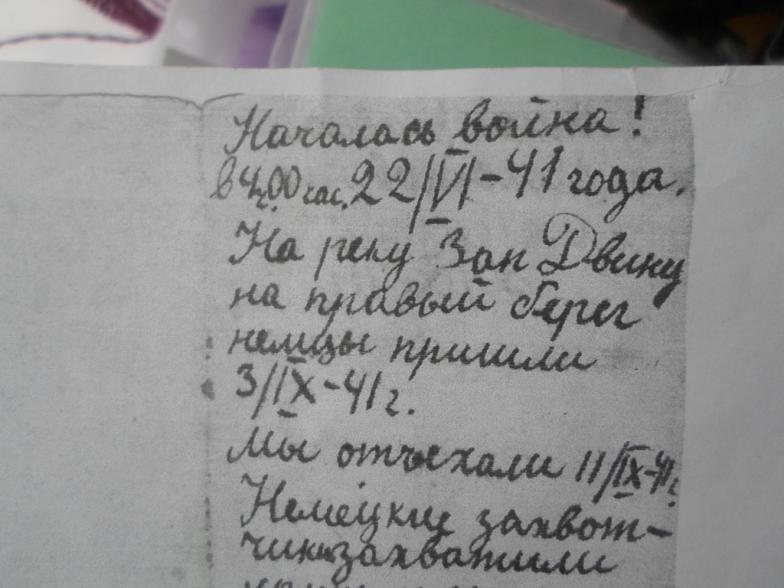 Началась война!
в 4.00 час. 22/VI-41 года.
На реку Зап Двину
на правый берег
немцы пришли
3/IX-41 г.
Мы отъехали 11/IX-41 г.
Немецкие захват-
чики захватили